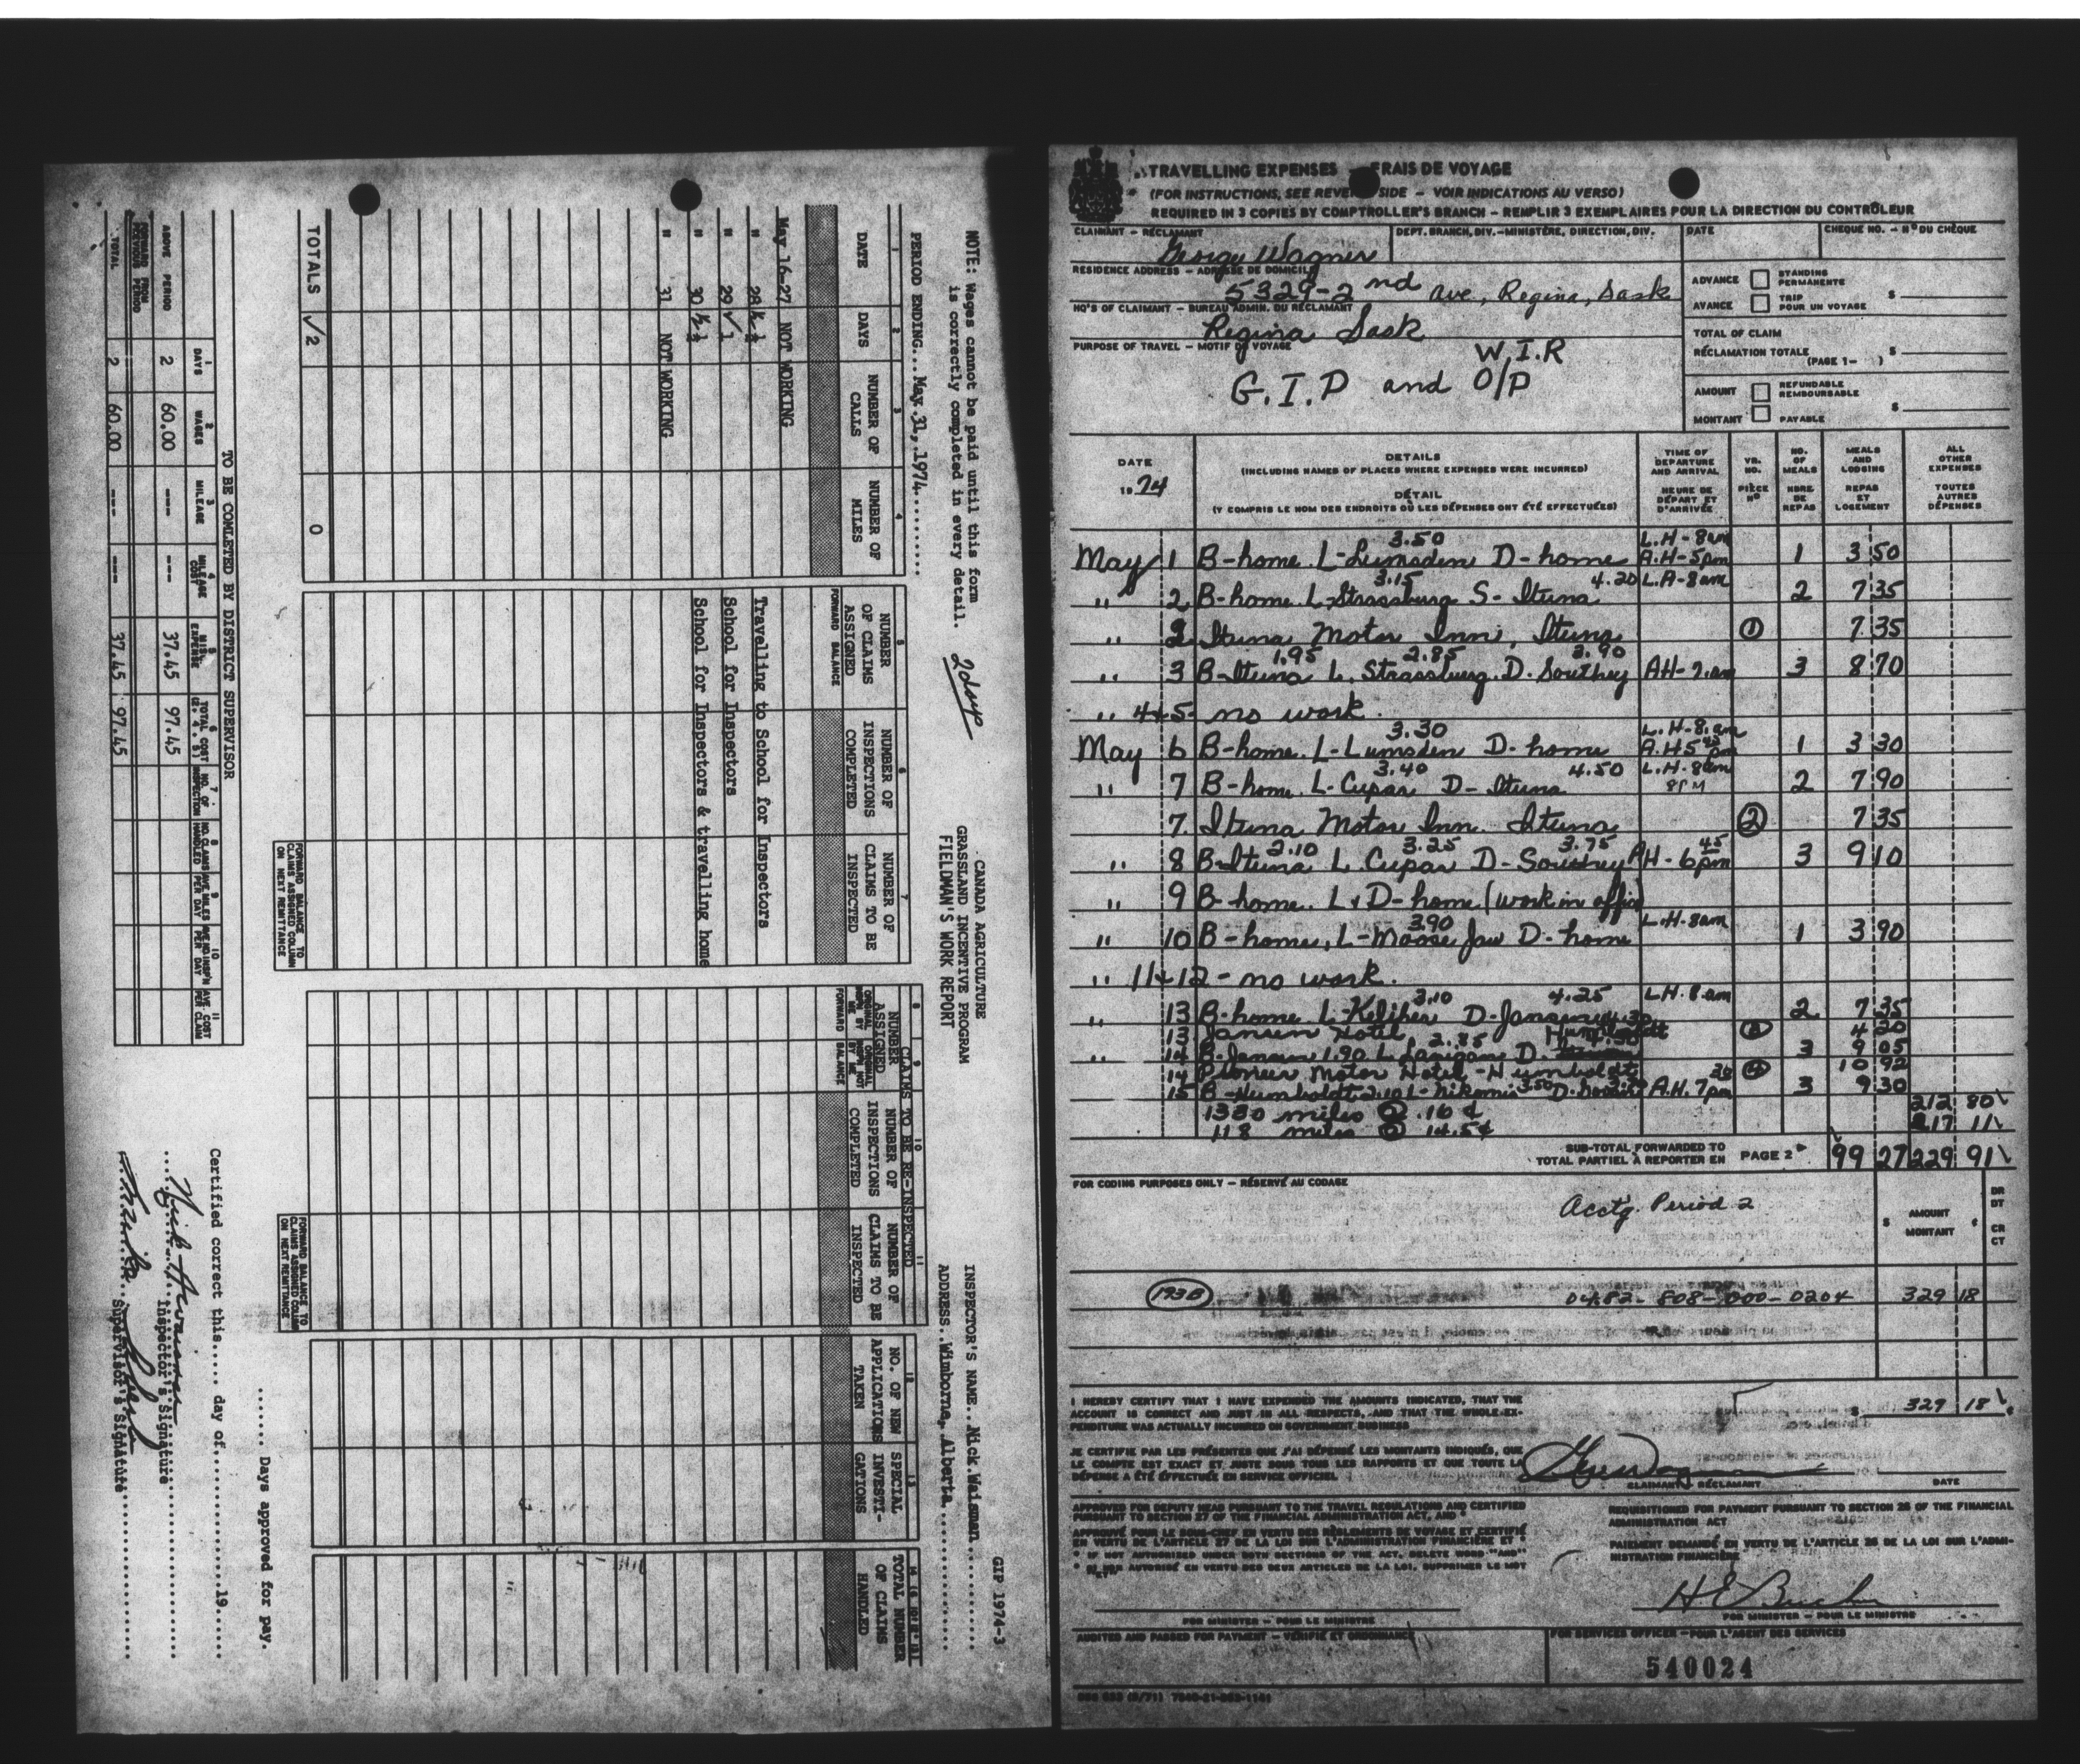 GIP 1974-3
CANADA AGRICULTURE
GRASSLAND INCENTIVE PROGRAM
FIELDMAN'S WORK REPORT
NOTE: Wages cannot be paid until this form
is correctly completed in every detail.
2 days
INSPECTOR'S NAME..Nick.Weisman..........
ADDRESS..Wimborne,.Alberta..............
PERIOD ENDING...May.31,.1974........
CLAIMS TO BE RE-INSPECTED
1 DATE
2 DAYS
3 NUMBER OF CALLS
4 NUMBER OF MILES
5 NUMBER OF CLAIMS ASSIGNED
FORWARD BALANCE
6 NUMBER OF INSPECTIONS COMPLETED
7 NUMBER OF CLAIMS TO BE INSPECTED
8 NUMBER ASSIGNED
ORIGINAL INSP'N BY ME
9 ORIGINAL INSP'N NOT BY ME
FORWARD BALANCE
10 NUMBER OF INSPECTIONS COMPLETED
11 NUMBER OF CLAIMS TO BE INSPECTED
12 NO. OF NEW APPLICATIONS TAKEN
13 SPECIAL INVESTI-GATIONS
TOTAL NUMBER OF CLAIMS HANDLED
May 16-27 NOT WORKING
" 28 ½ Travelling to School for Inspectors
" 29 √1 School for Inspectors
" 30 ½ School for Inspectors & travelling home
" 31 NOT WORKING
TOTALS √2 0
FORWARD BALANCE TO CLAIMS ASSIGNED COLUMN ON NEXT REMITTANCE
FORWARD BALANCE TO CLAIMS ASSIGNED COLUMN ON NEXT REMITTANCE
....... Days approved for pay.
TO BE COMPLETED BY DISTRICT SUPERVISOR
Certified correct this..... day of...............19......
1 DAYS
2 WAGES
3 MILEAGE
4 MILEAGE COST
5 MIS. EXPENSE
6 TOTAL COST (2, 4, 5)
7 NO. OF INSPECTION
8 NO. CLAIMS HANDLED
9 AVE MILES PER DAY
10 AVE NO INSP'N PER DAY
11 AVE COST PER CLAIM
ABOVE PERIOD 2 60.00 --- --- 37.45 97.45
FORWARD FROM PREVIOUS PERIOD
TOTAL 2 60.00 --- --- 37.45 97.45
Inspector's Signature
Supervisor's Signature
TRAVELLING EXPENSES - FRAIS DE VOYAGE
(FOR INSTRUCTIONS, SEE REVERSE SIDE - VOIR INDICATIONS AU VERSO)
REQUIRED IN 3 COPIES BY COMPTROLLER'S BRANCH - REMPLIR 3 EXEMPLAIRES POUR LA DIRECTION DU CONTRÔLEUR
CLAIMANT - RÉCLAMANT
DEPT. BRANCH, DIV.-MINISTÈRE, DIRECTION, DIV.
DATE
CHEQUE NO. - Nº DU CHÈQUE
George Wagner
RESIDENCE ADDRESS - ADRESSE DE DOMICILE
5329-2nd Ave, Regina, Sask
ADVANCE STANDING PERMANENTE
AVANCE TRIP POUR UN VOYAGE $
HQ'S OF CLAIMANT - BUREAU ADMIN. DU RÉCLAMANT
Regina Sask
TOTAL OF CLAIM
RÉCLAMATION TOTALE (PAGE 1- ) $
PURPOSE OF TRAVEL - MOTIF DU VOYAGE
W.I.R
G.I.P and O/P
AMOUNT REFUNDABLE REMBOURSABLE
MONTANT PAYABLE $
DATE 1974
DETAILS (INCLUDING NAMES OF PLACES WHERE EXPENSES WERE INCURRED)
DÉTAIL (Y COMPRIS LE NOM DES ENDROITS OÙ LES DÉPENSES ONT ÉTÉ EFFECTUÉES)
TIME OF DEPARTURE AND ARRIVAL HEURE DE DÉPART ET D'ARRIVÉE
VR. NO. PIÈCE Nº
NO. OF MEALS NBRE DE REPAS
MEALS AND LODGING REPAS ET LOGEMENT
ALL OTHER EXPENSES TOUTES AUTRES DÉPENSES
May 1 B-home L-Lumsden 3.50 D-home L.H-8am A.H-5pm 1 3 50
" 2 B-home L-Strassburg 3.15 S-Ituna 4.20 L.H-8am 2 7 35
" 2 Ituna Motor Inn, Ituna 1 7 35
" 3 B-Ituna 1.95 L. Strassburg 2.85 D. Southey 3.90 AH-7.am 3 8 70
" 4+5- no work.
May 6 B-home L-Lumsden 3.30 D-home L.H-8.am A.H 5 pm 1 3 30
" 7 B-home. L-Cupar 3.40 D-Ituna 4.50 L.H.8am 8PM 2 7 90
7. Ituna Motor Inn. Ituna 2 7 35
" 8 B-Ituna 2.10 L. Cupar 3.25 D-Southey 3.75 AH-6 45 pm 3 9 10
" 9 B-home. L+D-home (work in office)
" 10 B-home, L-Moose Jaw 3.90 D-home L.H-8am 1 3 90
" 11+12-no work.
" 13 B-home L-Keliher 3.10 D-Jansen 4.25 LH.8.am 2 7 35
13 Jansen Hotel 3 4 20
" 14 B-Jansen 1.90 L. Lanigan 2.85 D. Humboldt 4.30 3 9 05
14 Pioneer Motor Hotel-Humboldt 4 10 92
15 B-Humboldt 2.10 L-Nokomis 3.50 A.H. 7 30 pm 3 9 30
1330 miles @ .16¢ 212 80
118 miles @ 14.5¢ 17 11
SUB-TOTAL FORWARDED TO
TOTAL PARTIEL À REPORTER EN PAGE 2 99 27 229 91
FOR CODING PURPOSES ONLY - RÉSERVÉ AU CODAGE
Acctg. Period 2
AMOUNT MONTANT $ ¢
DR DT CR CT
193B 0482-808-000-0204 329 18
I HEREBY CERTIFY THAT I HAVE EXPENDED THE AMOUNTS INDICATED, THAT THE
ACCOUNT IS CORRECT AND JUST IN ALL RESPECTS, AND THAT THE WHOLE EX-
PENDITURE WAS ACTUALLY INCURRED ON GOVERNMENT BUSINESS
$ 329 18
JE CERTIFIE PAR LES PRÉSENTES QUE J'AI DÉPENSÉ LES MONTANTS INDIQUÉS, QUE
LE COMPTE EST EXACT ET JUSTE SOUS TOUS LES RAPPORTS ET QUE TOUTE LA
DÉPENSE A ÉTÉ EFFECTUÉE EN SERVICE OFFICIEL
CLAIMANT - RÉCLAMANT
DATE
APPROVED FOR DEPUTY HEAD PURSUANT TO THE TRAVEL REGULATIONS AND CERTIFIED
PURSUANT TO SECTION 27 OF THE FINANCIAL ADMINISTRATION ACT, AND *
APPROUVÉ POUR LE SOUS-CHEF EN VERTU DES RÈGLEMENTS DE VOYAGE ET CERTIFIÉ
EN VERTU DE L'ARTICLE 27 DE LA LOI SUR L'ADMINISTRATION FINANCIÈRE ET *
* IF NOT AUTHORIZED UNDER BOTH SECTIONS OF THE ACT, DELETE WORD "AND"
AUTORISÉ EN VERTU DES DEUX ARTICLES DE LA LOI, SUPPRIMER LE MOT "ET"
REQUISITIONED FOR PAYMENT PURSUANT TO SECTION 26 OF THE FINANCIAL
ADMINISTRATION ACT
PAIEMENT DEMANDÉ EN VERTU DE L'ARTICLE 26 DE LA LOI SUR L'ADMI-
NISTRATION FINANCIÈRE
FOR MINISTER - POUR LE MINISTRE
FOR MINISTER - POUR LE MINISTRE
AUDITED AND PASSED FOR PAYMENT - VÉRIFIÉ ET ORDONNANCÉ
FOR SERVICES OFFICER - POUR L'AGENT DES SERVICES
540024